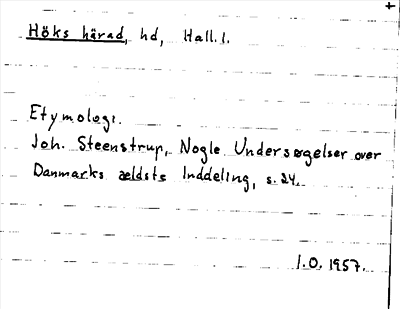 Höks härad, hd, Hall.l.
Etymologi.
Joh. Steenstrup, Nogle Undersøgelser over
Danmarks ældste Inddeling, s. 24.
I.O. 1957.